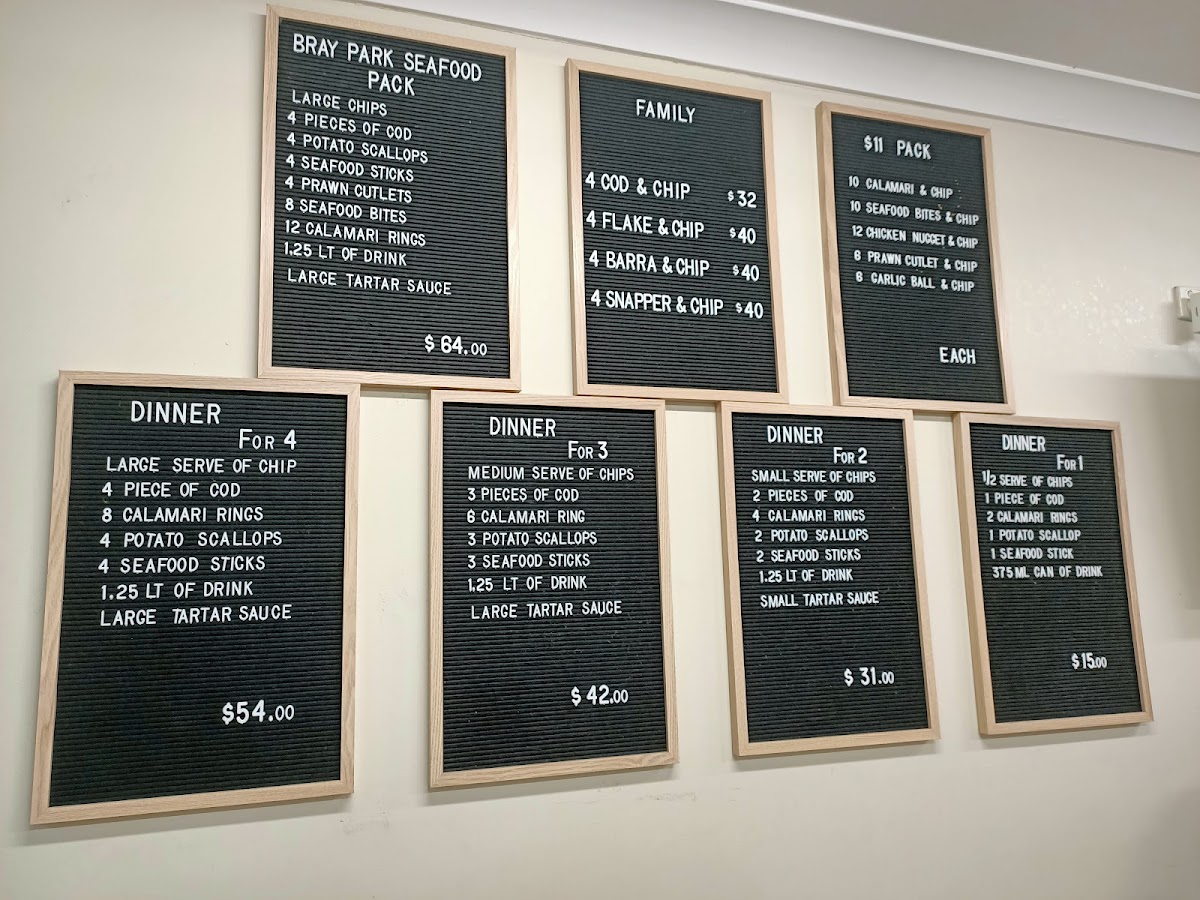 BRAY PARK SEAFOOD
PACK
LARGE CHIPS
4 PIECES OF COD
4 POTATO SCALLOPS
4 SEAFOOD STICKS
4 PRAWN CUTLETS
8 SEAFOOD BITES
12 CALAMARI RINGS
1.25 LT OF DRINK
LARGE TARTAR SAUCE
$ 64.00
FAMILY
4 COD & CHIP $32
4 FLAKE & CHIP $40
4 BARRA & CHIP $40
4 SNAPPER & CHIP $40
$11 PACK
10 CALAMARI & CHIP
10 SEAFOOD BITES & CHIP
12 CHICKEN NUGGET & CHIP
6 PRAWN CUTLET & CHIP
6 GARLIC BALL & CHIP
EACH
DINNER
FOR 4
LARGE SERVE OF CHIP
4 PIECE OF COD
8 CALAMARI RINGS
4 POTATO SCALLOPS
4 SEAFOOD STICKS
1.25 LT OF DRINK
LARGE TARTAR SAUCE
$54.00
DINNER
FOR 3
MEDIUM SERVE OF CHIPS
3 PIECES OF COD
6 CALAMARI RING
3 POTATO SCALLOPS
3 SEAFOOD STICKS
1.25 LT OF DRINK
LARGE TARTAR SAUCE
$ 42.00
DINNER
FOR 2
SMALL SERVE OF CHIPS
2 PIECES OF COD
4 CALAMARI RINGS
2 POTATO SCALLOPS
2 SEAFOOD STICKS
1.25 LT OF DRINK
SMALL TARTAR SAUCE
$ 31.00
DINNER
FOR 1
1/2 SERVE OF CHIPS
1 PIECE OF COD
2 CALAMARI RINGS
1 POTATO SCALLOP
1 SEAFOOD STICK
375 ML CAN OF DRINK
$ 15.00